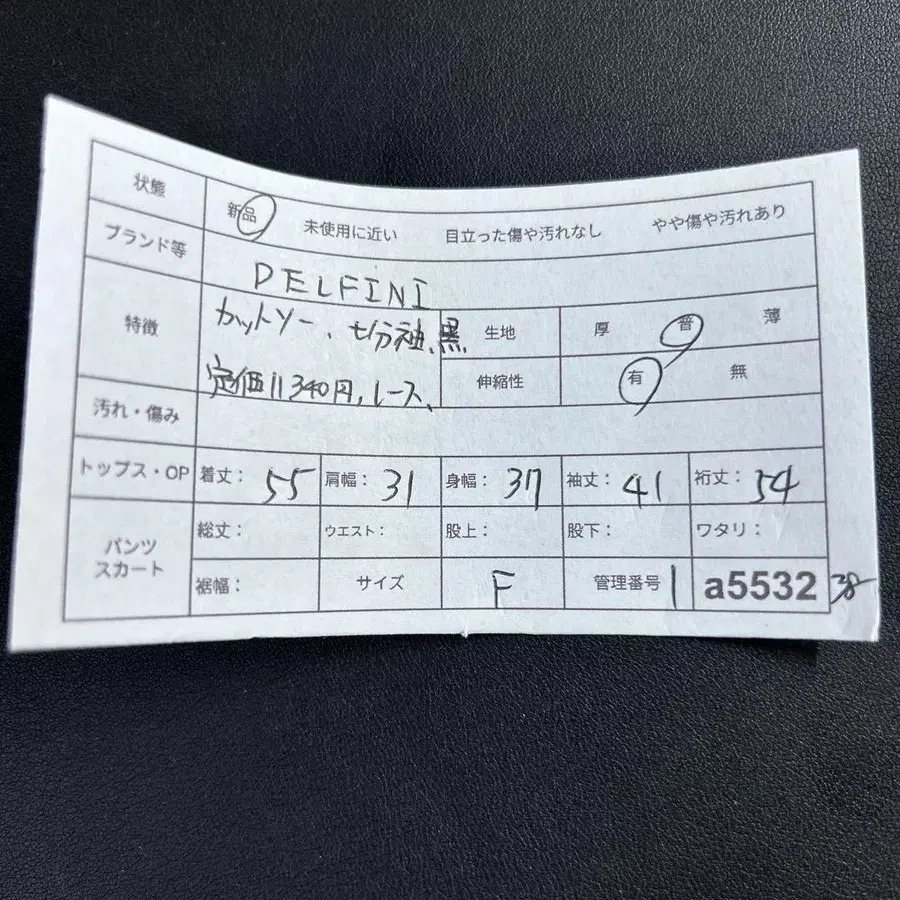 状態 新品 未使用に近い 目立った傷や汚れなし やや傷や汚れあり
ブランド等 DELFINI
特徴 カットソー、七分袖、黒、
定価11340円,レース、
生地 厚 普 薄
伸縮性 有 無
汚れ・傷み
トップス・OP 着丈: 55 肩幅: 31 身幅: 37 袖丈: 41 裄丈: 54
パンツ
スカート
総丈: ウエスト: 股上: 股下: ワタリ:
裾幅: サイズ F 管理番号 1 a5532 38